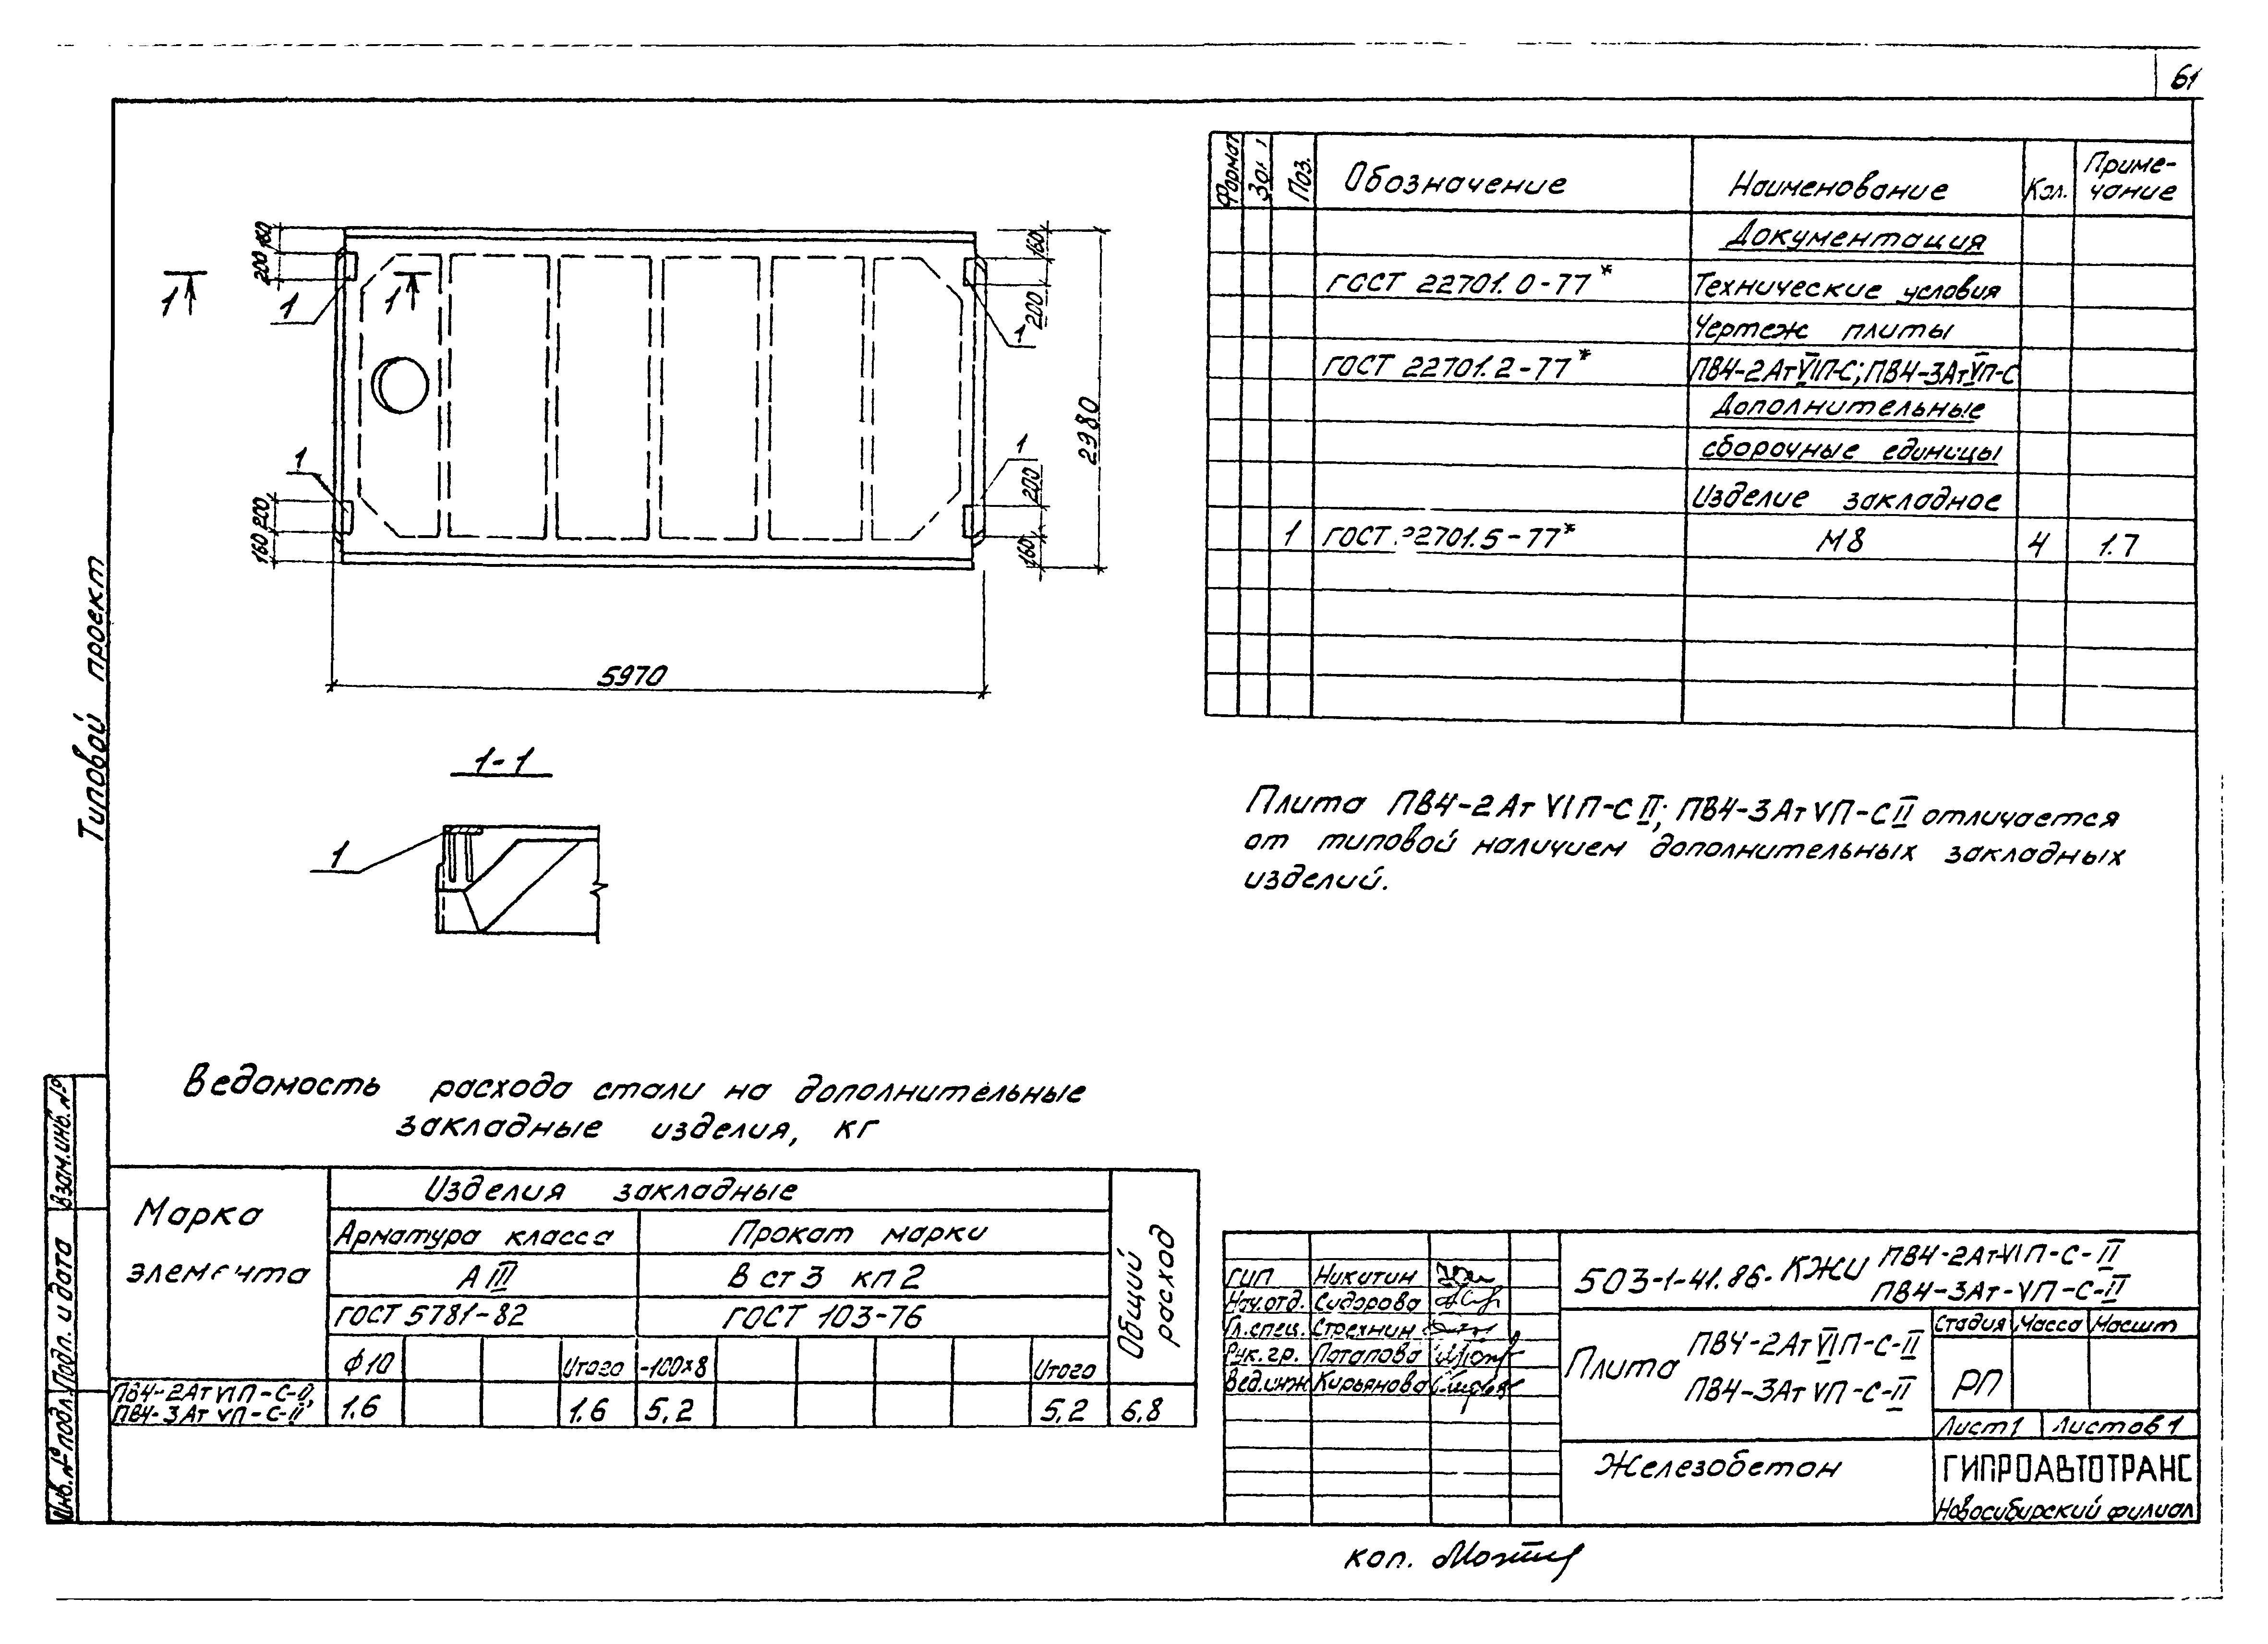 61
Типовой проект
160
200
1
1
1
160
200
1
1
200
160
1
200
160
2980
5970
1-1
1
Формат Поз. Обозначение Наименование Кол. Приме-
чание
Документация
ГОСТ 22701.0-77* Технические условия
Чертеж плиты
ГОСТ 22701.2-77* ПВ4-2АтVIП-С; ПВ4-3АтVП-С
Дополнительные
сборочные единицы
Изделие закладное
1 ГОСТ 22701.5-77* М8 4 1.7
Плита ПВ4-2АтVIП-СII; ПВ4-3АтVП-СII отличается
от типовой наличием дополнительных закладных
изделий.
Ведомость расхода стали на дополнительные
закладные изделия, кг
Марка
элемента
Изделия закладные
Общий
расход
Арматура класса Прокат марки
АIII Вст3 кп2
ГОСТ 5781-82 ГОСТ 103-76
Ф10 Итого -100х8 Итого
ПВ4-2АтVIП-С-II,
ПВ4-3АтVП-С-II
1.6 1.6 5,2 5,2 6,8
Взам.инв.№
Подп. и дата
Инв.№подл.
503-1-41.86-КЖИ ПВ4-2АтVIП-С-II
ПВ4-3Ат-VП-С-II
ГИП Никитин
Нач.отд. Сидорова
Гл.спец. Стрехнин
Рук.гр. Потапова
Вед.инж Кирьянова
Плита ПВ4-2АтVIП-С-II
ПВ4-3АтVП-С-II
Стадия Масса Масшт
РП
Лист1 Листов 1
Железобетон
ГИПРОАВТОТРАНС
Новосибирский филиал
коп.